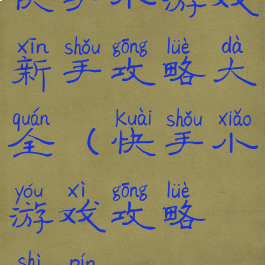 xīn shǒu gōng lüè dà
新手攻略大
quán kuài shǒu xiǎo
全（快手小
yóu xì gōng lüè
游戏攻略
shì pín